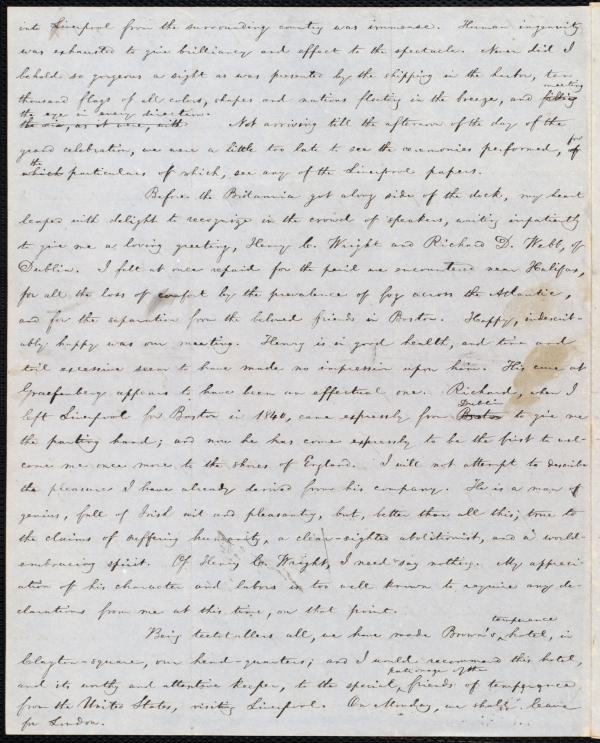 into Liverpool from the surrounding country was immense. Human ingenuity
was exhausted to give brilliancy and effect to the spectacle. Never did I
behold so gorgeous a sight as was presented by the shipping in the harbor, ten
meeting
thousand flags of all colors, shapes and nations floating in the breeze, and filling
the eye in every direction.
the air, as it were, with Not arriving till the afternoon of the day of the
grand celebration, we were a little too late to see the ceremonies performed, for of
the
which particulars of which, see any of the Liverpool papers.
Before the Britannia got along side of the dock, my heart
leaped with delight to recognize in the crowd of speakers, waiting impatiently
to give me a loving greeting, Henry C. Wright and Richard D. Webb, of
Dublin. I felt at once repaid for the peril we encountered near Halifax,
for all the loss of comfort by the prevalence of fog across the Atlantic,
and for the separation from the beloved friends in Boston. Happy, indescrib-
ably happy was our meeting. Henry is in good health, and time and
toil excessive seem to have made no impression upon him. His cure at
Graefenberg appears to have been an effectual one. Richard, when I
Dublin
left Liverpool for Boston in 1840, came expressly from Boston to give me
the parting hand; and now he has come expressly to be the first to wel-
come me once more to the shores of England. I will not attempt to describe
the pleasure I have already derived from his company. He is a man of
genius, full of Irish wit and pleasantry, but, better than all this, true to
the claims of suffering humanity, a clear-sighted abolitionist, and a world-
embracing spirit. Of Henry C. Wright, I need say nothing. My appreci-
ation of his character and labors is too well known to require any de-
clarations from me at this time, on that point.
temperance
Being teetotallers all, we have made Brown's hotel, in
Clayton-square, our head-quarters; and I would recommend this hotel,
patronage of the
and its worthy and attentive keeper, to the special friends of temperance
from the United States, visiting Liverpool. On Monday, we shall leave
for London.